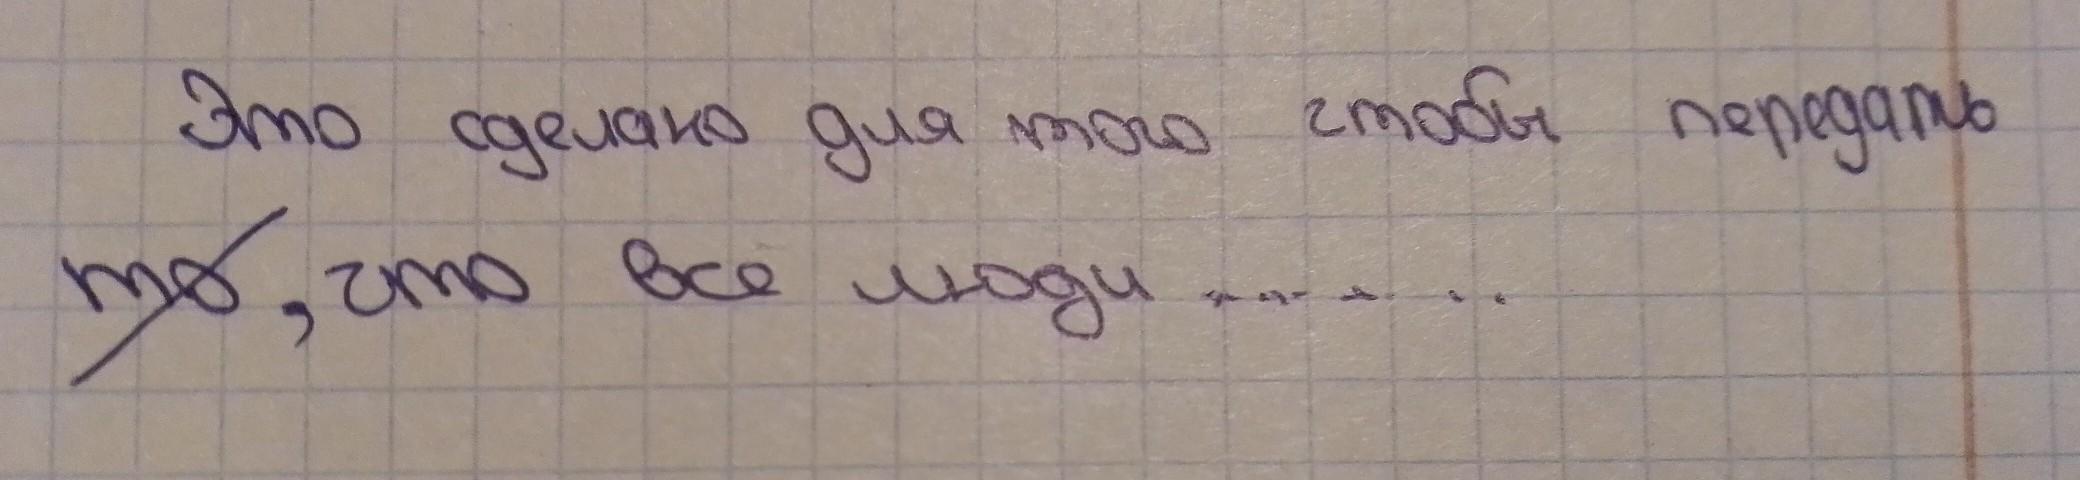 Это сделано для того чтобы передать
то, что все люди ..........